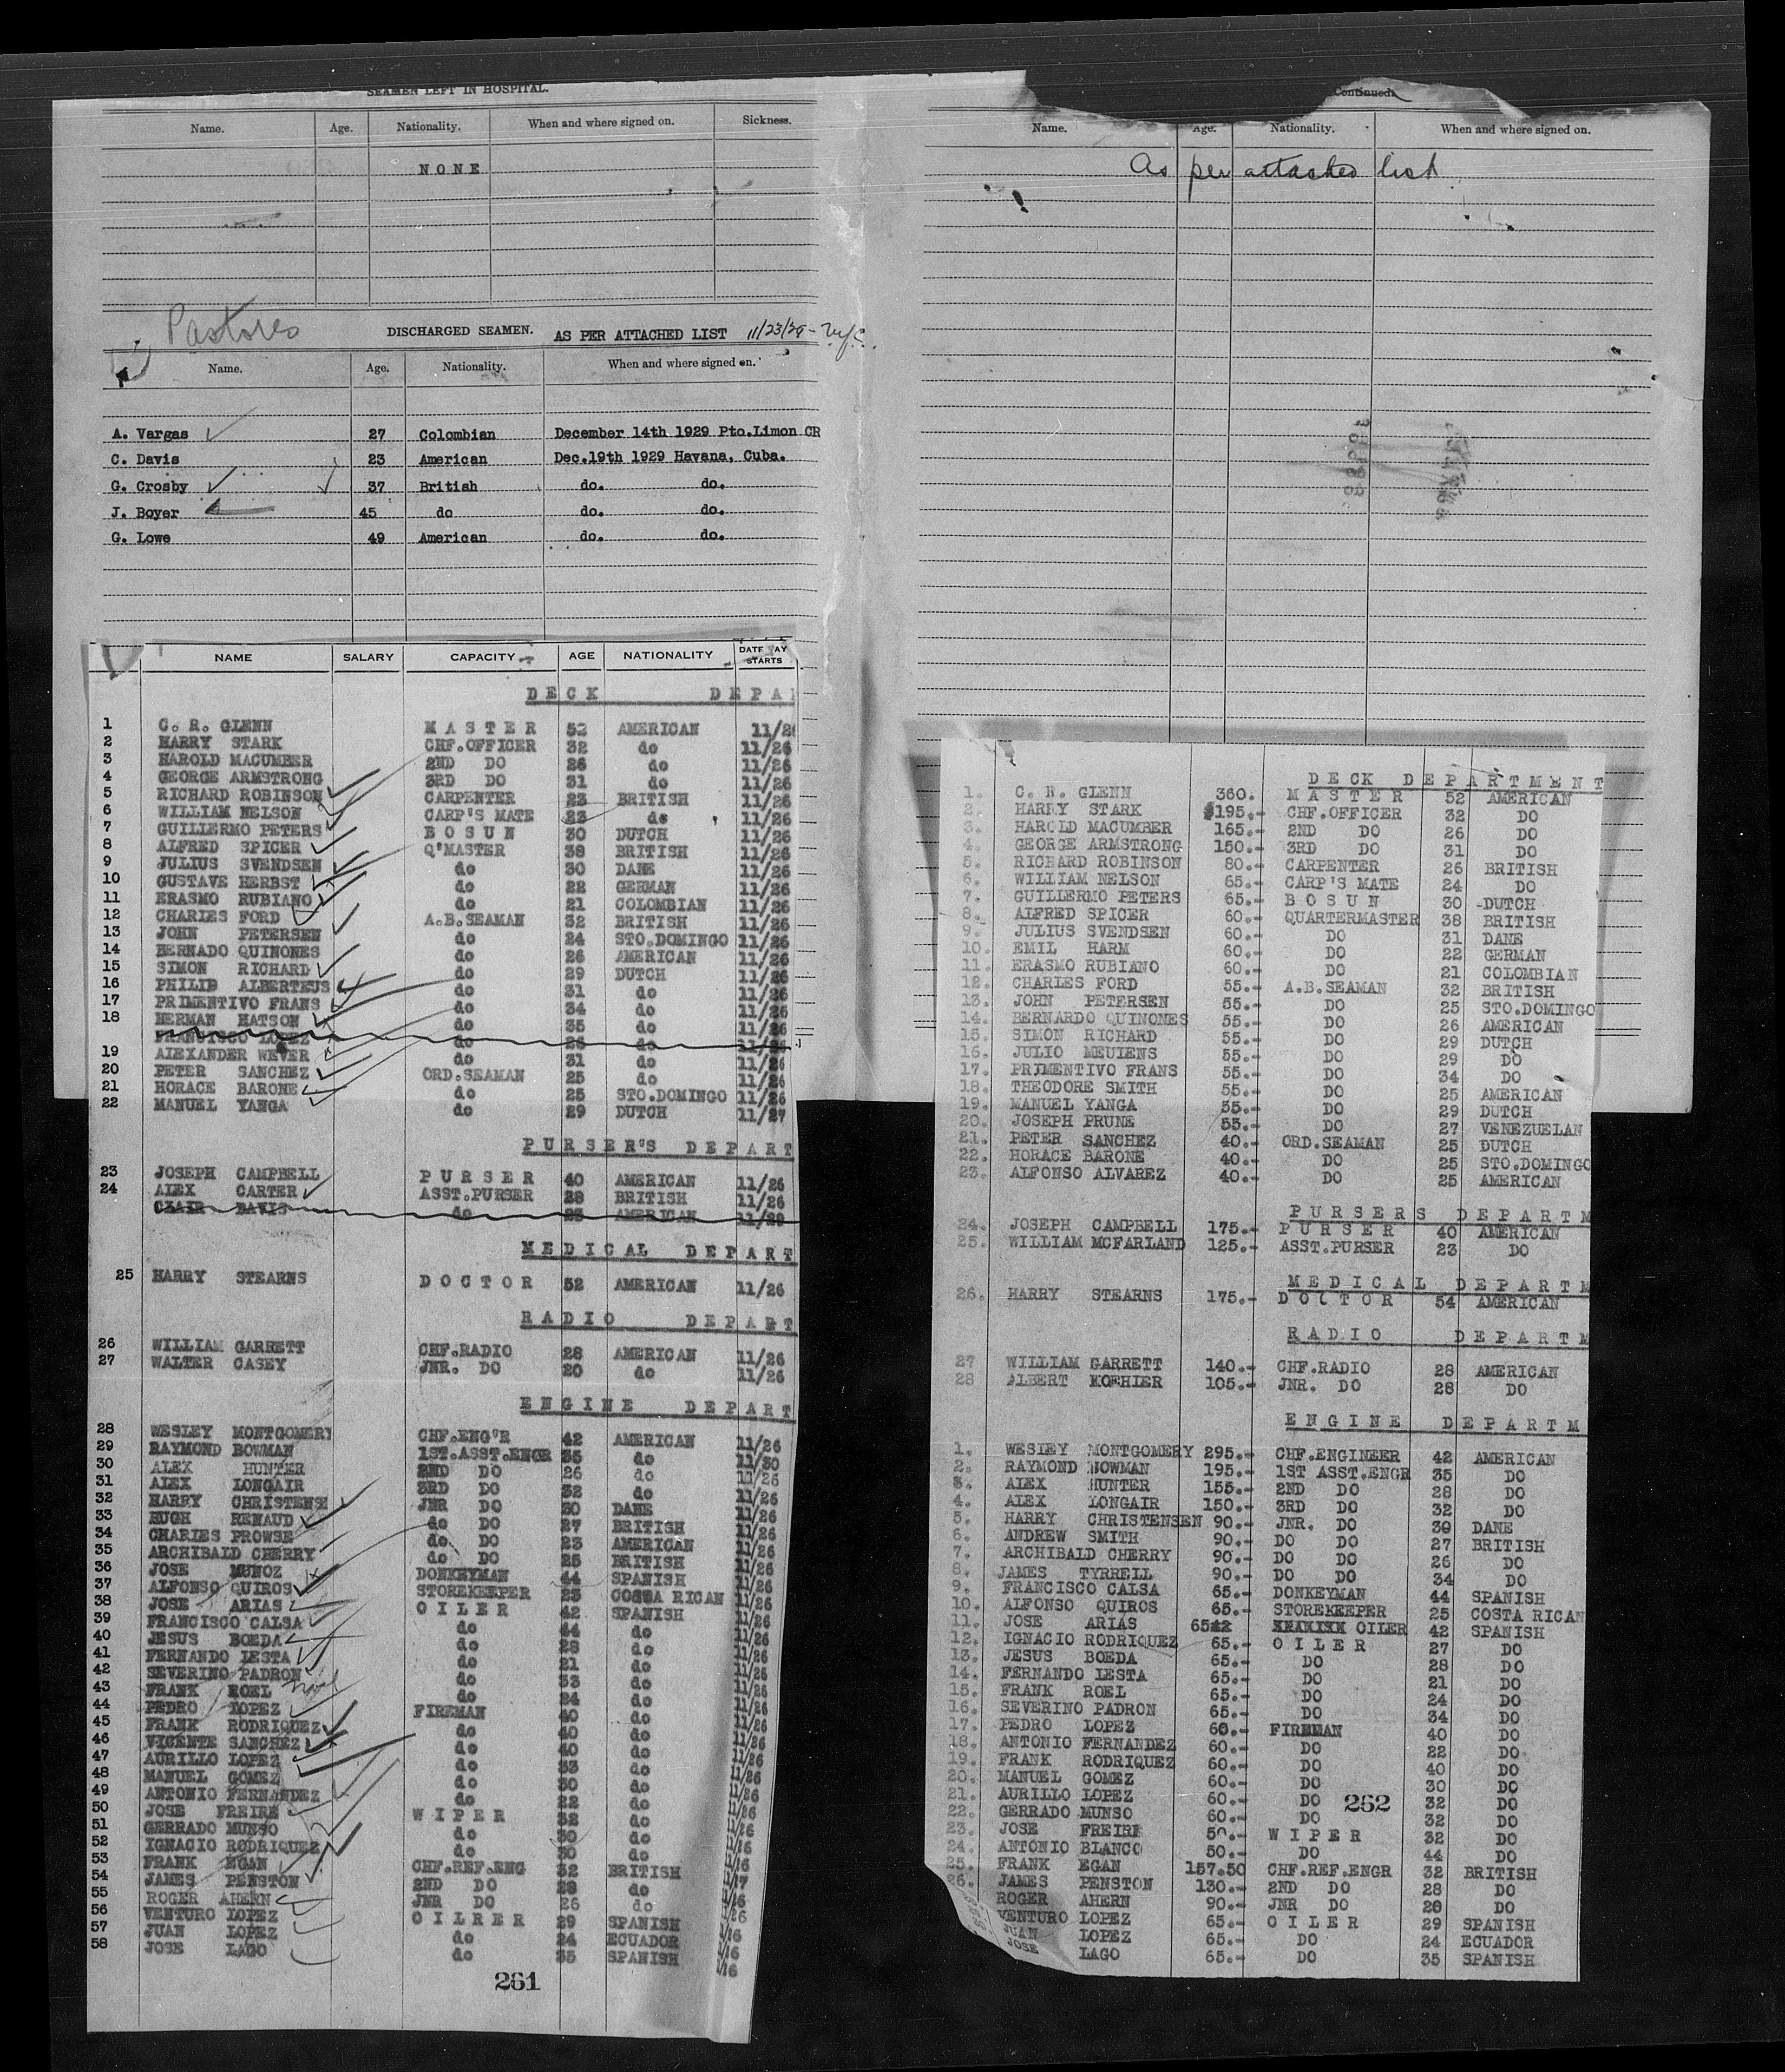 SEAMEN LEFT IN HOSPITAL.
Name. Age. Nationality. When and where signed on. Sickness.
NONE
Pastores
DISCHARGED SEAMEN. AS PER ATTACHED LIST 11/23/29
Name. Age. Nationality. When and where signed on.
A. Vargas 27 Colombian December 14th 1929 Pto.Limon CR
C. Davis 23 American Dec.19th 1929 Havana, Cuba.
G. Crosby 37 British do. do.
J. Boyer 45 do do. do.
G. Lowe 49 American do. do.
NAME SALARY CAPACITY AGE NATIONALITY DATE PAY STARTS
DECK DEPAR
1 C. R. GLENN MASTER 52 AMERICAN 11/26
2 HARRY STARK CHF.OFFICER 32 do 11/26
3 HAROLD MACUMBER 2ND DO 26 do 11/26
4 GEORGE ARMSTRONG 3RD DO 31 do 11/26
5 RICHARD ROBINSON CARPENTER 23 BRITISH 11/26
6 WILLIAM NELSON CARP'S MATE 23 do 11/26
7 GUILLERMO PETERS BOSUN 30 DUTCH 11/26
8 ALFRED SPICER Q'MASTER 38 BRITISH 11/26
9 JULIUS SVENDSEN do 30 DANE 11/26
10 GUSTAVE HERBST do 22 GERMAN 11/26
11 ERASMO RUBIANO do 21 COLOMBIAN 11/26
12 CHARLES FORD A.B.SEAMAN 32 BRITISH 11/26
13 JOHN PETERSEN do 24 STO.DOMINGO 11/26
14 BERNADO QUINONES do 26 AMERICAN 11/26
15 SIMON RICHARD do 29 DUTCH 11/26
16 PHILIP ALBERTEUS do 31 do 11/26
17 PRIMENTIVO FRANS do 34 do 11/26
18 HERMAN HATSON do 35 do 11/26
FRANCISCO LOPEZ do 26 do 11/26
19 ALEXANDER WEVER do 31 do 11/26
20 PETER SANCHEZ ORD.SEAMAN 25 do 11/26
21 HORACE BARONE do 25 STO.DOMINGO 11/26
22 MANUEL YANGA do 29 DUTCH 11/27
PURSER'S DEPART
23 JOSEPH CAMPBELL PURSER 40 AMERICAN 11/26
24 ALEX CARTER ASST.PURSER 28 BRITISH 11/26
CLAIR DAVIS do 23 AMERICAN 11/29
MEDICAL DEPART
25 HARRY STEARNS DOCTOR 52 AMERICAN 11/26
RADIO DEPART
26 WILLIAM GARRETT CHF.RADIO 28 AMERICAN 11/26
27 WALTER CASEY JNR. DO 20 do 11/26
ENGINE DEPART
28 WESLEY MONTGOMERY CHF.ENG'R 42 AMERICAN 11/26
29 RAYMOND BOWMAN 1ST.ASST.ENGR 35 do 11/30
30 ALEX HUNTER 2ND DO 26 do 11/26
31 ALEX LONGAIR 3RD DO 32 do 11/26
32 HARRY CHRISTENSE JNR DO 30 DANE 11/26
33 HUGH RENAUD do DO 27 BRITISH 11/26
34 CHARLES PROWSE do DO 23 AMERICAN 11/26
35 ARCHIBALD CHERRY do DO 25 BRITISH 11/26
36 JOSE MUNOZ DONKEYMAN 44 SPANISH 11/26
37 ALFONSO QUIROS STOREKEEPER 23 COSTA RICAN 11/26
38 JOSE ARIAS OILER 42 SPANISH 11/26
39 FRANCISCO CALSA do 44 do 11/26
40 JESUS BOEDA do 28 do 11/26
41 FERNANDO LESTA do 21 do 11/26
42 SEVERINO PADRON do 33 do 11/26
43 FRANK ROEL do 24 do 11/26
44 PEDRO LOPEZ FIREMAN 40 do 11/26
45 FRANK RODRIQUEZ do 40 do 11/26
46 VICENTE SANCHEZ do 40 do 11/26
47 AURILLO LOPEZ do 33 do 11/26
48 MANUEL GOMEZ do 30 do 11/26
49 ANTONIO FERNANDEZ do 22 do 11/26
50 JOSE FREIRE WIPER 32 do 11/26
51 GERRADO MUNSO do 30 do
52 IGNACIO RODRIQUEZ do 30 do
53 FRANK EGAN CHF.REF.ENG 32 BRITISH
54 JAMES PENSTON 2ND DO 28 do
55 ROGER AHERN JNR DO 26 do
56 VENTURO LOPEZ OILRER 29 SPANISH
57 JUAN LOPEZ do 24 ECUADOR
58 JOSE LAGO do 35 SPANISH
261
Continued.
Name. Age. Nationality. When and where signed on.
As per attached list
DECK DEPARTMENT
1. C. R. GLENN 360. MASTER 52 AMERICAN
2. HARRY STARK $195.- CHF.OFFICER 32 DO
3. HAROLD MACUMBER 165.- 2ND DO 26 DO
4. GEORGE ARMSTRONG 150.- 3RD DO 31 DO
5. RICHARD ROBINSON 80.- CARPENTER 26 BRITISH
6. WILLIAM NELSON 65.- CARP'S MATE 24 DO
7. GUILLERMO PETERS 65.- BOSUN 30 DUTCH
8. ALFRED SPICER 60.- QUARTERMASTER 38 BRITISH
9. JULIUS SVENDSEN 60.- DO 31 DANE
10. EMIL HARM 60.- DO 22 GERMAN
11. ERASMO RUBIANO 60.- DO 21 COLOMBIAN
12. CHARLES FORD 55.- A.B.SEAMAN 32 BRITISH
13. JOHN PETERSEN 55.- DO 25 STO.DOMINGO
14. BERNARDO QUINONES 55.- DO 26 AMERICAN
15. SIMON RICHARD 55.- DO 29 DUTCH
16. JULIO MEUIENS 55.- DO 29 DO
17. PRIMENTIVO FRANS 55.- DO 34 DO
18. THEODORE SMITH 55.- DO 25 AMERICAN
19. MANUEL YANGA 55.- DO 29 DUTCH
20. JOSEPH PRUNE 55.- DO 27 VENEZUELAN
21. PETER SANCHEZ 40.- ORD.SEAMAN 25 DUTCH
22. HORACE BARONE 40.- DO 25 STO.DOMINGO
23. ALFONSO ALVAREZ 40.- DO 25 AMERICAN
PURSERS DEPARTM
24. JOSEPH CAMPBELL 175.- PURSER 40 AMERICAN
25. WILLIAM MCFARLAND 125.- ASST.PURSER 23 DO
MEDICAL DEPARTM
26. HARRY STEARNS 175.- DOCTOR 54 AMERICAN
RADIO DEPARTM
27 WILLIAM GARRETT 140.- CHF.RADIO 28 AMERICAN
28 ALBERT KOEHIER 105.- JNR. DO 28 DO
ENGINE DEPARTM
1. WESLEY MONTGOMERY 295.- CHF.ENGINEER 42 AMERICAN
2. RAYMOND BOWMAN 195.- 1ST ASST.ENGR 35 DO
3. ALEX HUNTER 155.- 2ND DO 28 DO
4. ALEX LONGAIR 150.- 3RD DO 32 DO
5. HARRY CHRISTENSEN 90.- JNR. DO 30 DANE
6. ANDREW SMITH 90.- DO DO 27 BRITISH
7. ARCHIBALD CHERRY 90.- DO DO 26 DO
8. JAMES TYRRELL 90.- DO DO 34 DO
9. FRANCISCO CALSA 65.- DONKEYMAN 44 SPANISH
10. ALFONSO QUIROS 65.- STOREKEEPER 25 COSTA RICAN
11. JOSE ARIAS OILER 42 SPANISH
12. IGNACIO RODRIQUEZ 65.- OILER 27 DO
13. JESUS BOEDA 65.- DO 28 DO
14. FERNANDO LESTA 65.- DO 21 DO
15. FRANK ROEL 65.- DO 24 DO
16. SEVERINO PADRON 65.- DO 34 DO
17. PEDRO LOPEZ 60.- FIREMAN 40 DO
18. ANTONIO FERNANDEZ 60.- DO 22 DO
19. FRANK RODRIQUEZ 60.- DO 40 DO
20. MANUEL GOMEZ 60.- DO 30 DO
21. AURILLO LOPEZ 60.- DO 32 DO
262
22. GERRADO MUNSO 60.- DO 32 DO
23. JOSE FREIRE 50.- WIPER 32 DO
24. ANTONIO BLANCO 50.- DO 44 DO
25. FRANK EGAN 157.50 CHF.REF.ENGR 32 BRITISH
26. JAMES PENSTON 130.- 2ND DO 28 DO
ROGER AHERN 90.- JNR DO 26 DO
VENTURO LOPEZ 65.- OILER 29 SPANISH
JUAN LOPEZ 65.- DO 24 ECUADOR
JOSE LAGO 65.- DO 35 SPANISH